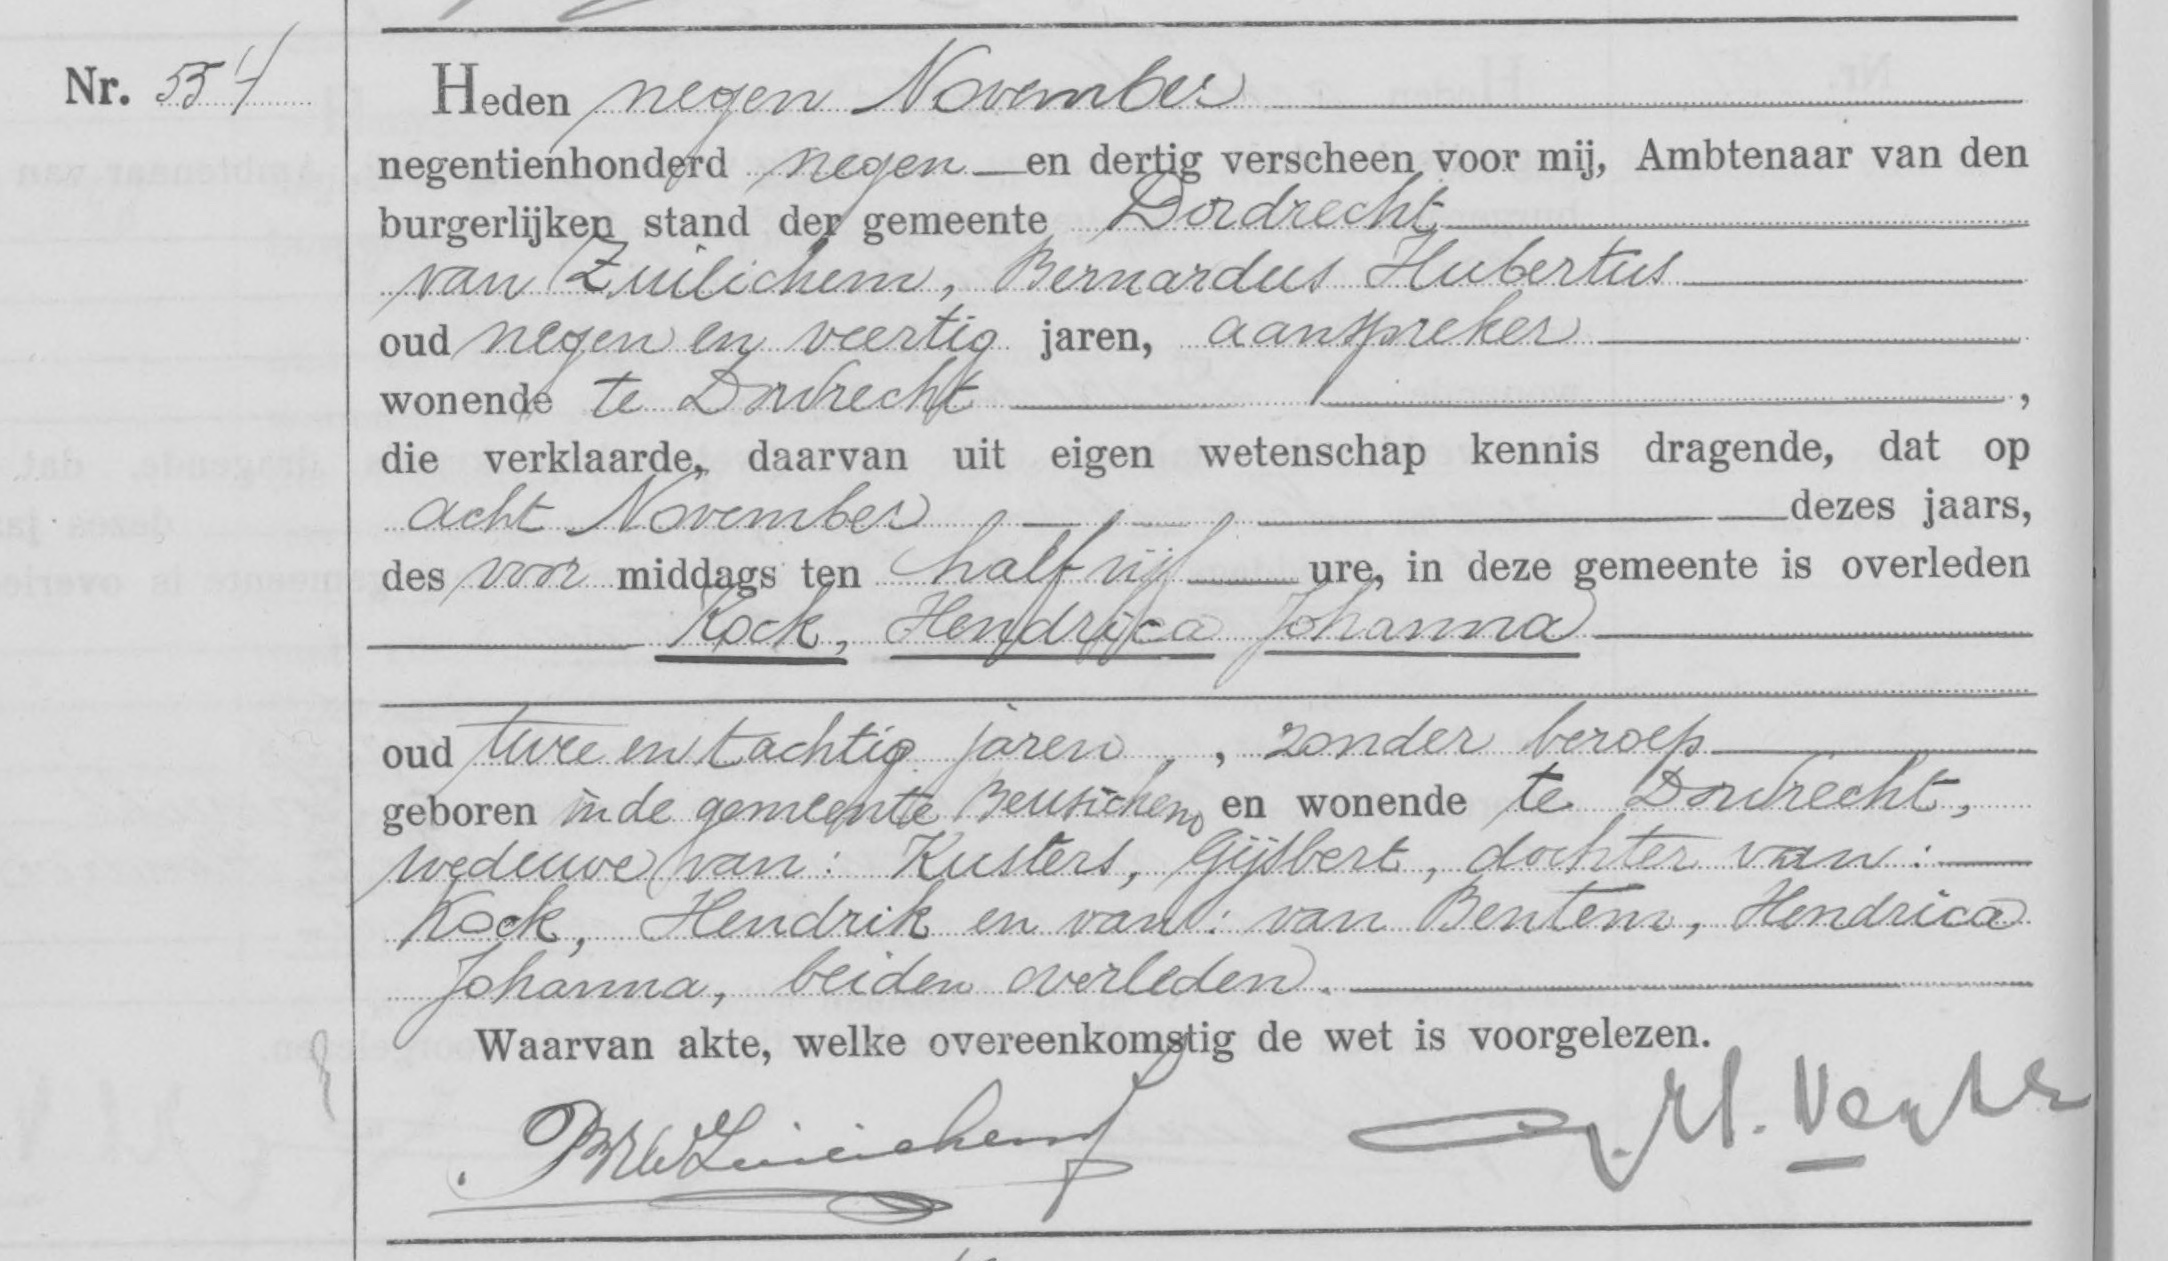 Nr. 554
Heden negen November
negentienhonderd negen en dertig verscheen voor mij, Ambtenaar van den
burgerlijken stand der gemeente Dordrecht
van Zuilichem, Bernardus Hubertus
oud negen en veertig jaren, aanspreker
wonende te Dordrecht ,
die verklaarde, daarvan uit eigen wetenschap kennis dragende, dat op
acht November dezes jaars,
des voor middags ten half vijf ure, in deze gemeente is overleden
Kock, Hendrica Johanna
oud twee en tachtig jaren, , zonder beroep
geboren in de gemeente Beusichem en wonende te Dordrecht,
weduwe van: Kusters, Gijsbert, dochter van:
Kock, Hendrik en van: van Bentem, Hendrica
Johanna, beiden overleden.
Waarvan akte, welke overeenkomstig de wet is voorgelezen.